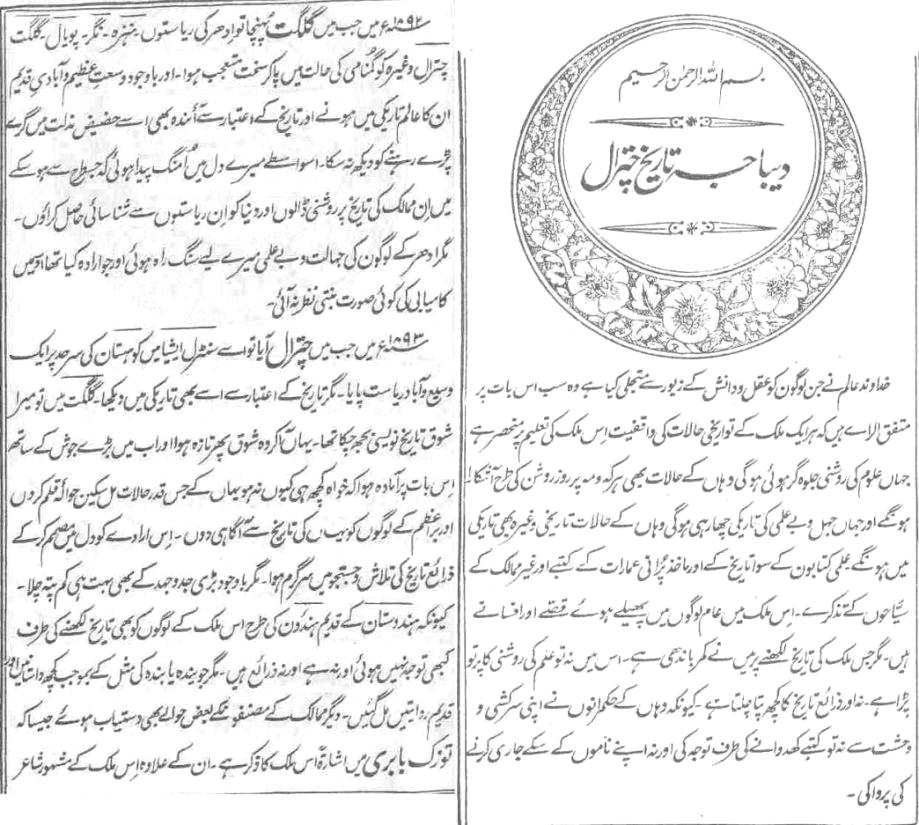 بسم اللہ الرحمٰن الرحیم
دیباچہ تاریخ چترال
خداوند عالم نے جن لوگون کو عقل و دانش کے زیور سے متجلی کیا ہے وہ سب اس بات پر
متفق الراے ہیں کہ ہر ایک ملک کے تواریخی حالات کی واقفیت اس ملک کی تعلیم پر منحصر ہے
جہاں علوم کی روشنی جلوہ گر ہوئی ہوگی وہاں کے حالات بھی ہر کہ ومہ پر روز روشن کی طرح آشکارا
ہونگے اور جہاں جہل و بے علمی کی تاریکی چھا رہی ہوگی وہاں کے حالات تاریخی وغیرہ بھی تاریکی
میں ہونگے علمی کتابون کے سوا تاریخ کے اور ماخذ پُرانی عمارات کے کتبے اور غیر ممالک کے
سیّاحوں کے تذکرے۔ اس ملک میں عام لوگوں میں پھیلے ہوئے قصے اور افسانے
ہیں۔ مگر جس ملک کی تاریخ لکھنے پر میں نے کمر باندھی ہے۔ اس میں نہ تو علم کی روشنی کا پرتو
پڑا ہے۔ نہ اور ذرائع تاریخ کا کچھ پتا چلتا ہے۔ کیونکہ وہاں کے حکمرانوں نے اپنی سرکشی و
وحشت سے نہ تو کتبے کھدوانے کی طرف توجہ کی اور نہ اپنے ناموں کے سکے جاری کرنے
کی پروا کی۔
۱۸۹۲ء میں جب میں گلگت پہنچا تو ادھر کی ریاستوں ہنزہ۔ نگر۔ پویال۔ گلگت
چترال وغیرہ کو گمنامی کی حالت میں پا کر سخت متعجب ہوا۔ اور باوجود وسعت عظیم و آبادی قدیم
ان کا عالم تاریکی میں ہونے اور تاریخ کے اعتبار سے آئندہ بھی اسے حضیض مذلت میں گرے
پڑے رہنے کو دیکھ نہ سکا۔ اسواسطے میرے دل میں اُمنگ پیدا ہوئی کہ جسطرح سے ہو سکے
میں ان ممالک کی تاریخ پر روشنی ڈالوں اور دنیا کو ان ریاستوں سے شناسائی حاصل کراؤں۔
مگر ادھر کے لوگون کی جہالت و بے علمی میرے لیے سنگ راہ ہوئی اور جو ارادہ کیا تھا اس میں
کامیابی کی کوئی صورت بنتی نظر نہ آئی۔
۱۸۹۳ء میں جب میں چترال آیا تو اسے سنٹرل ایشیا میں کوہستان کی سرحد پر ایک
وسیع و آباد ریاست پایا۔ مگر تاریخ کے اعتبار سے اسے بھی تاریکی میں دیکھا۔ گلگت میں تو میرا
شوق تاریخ نویسی بجھ چکا تھا۔ یہاں آ کر وہ شوق پھر تازہ ہوا اور اب میں بڑے جوش کے ساتھ
اس بات پر آمادہ ہوا کہ خواہ کچھ ہی کیوں نہ ہو یہاں کے جس قدر حالات مل سکین حوالہ قلم کردوں
اور بر اعظم کے لوگوں کو یہاں کی تاریخ سے آگاہی دوں۔ اس ارادے کو دل میں مصمم کر کے
ذرائع تاریخ کی تلاش و جستجو میں سرگرم ہوا۔ مگر باوجود بڑی جد وجہد کے بھی بہت ہی کم پتہ چلا۔
کیونکہ ہندوستان کے قدیم ہندون کی طرح اس ملک کے لوگوں کو بھی تاریخ لکھنے کی طرف
کبھی توجہ نہیں ہوئی اور نہ ہے اور نہ ذرائع ہیں۔ مگر جویندہ یابندہ کی مثل کے بموجب کچھ داستانیں اور
قدیم روایتیں مل گئیں۔ دیگر ممالک کے مصنفونکے بعض حوالے بھی دستیاب ہوئے جیسا کہ
توزک بابری میں اشارۃً اس ملک کا ذکر ہے۔ ان کے علاوہ اس ملک کے مشہور شاعر